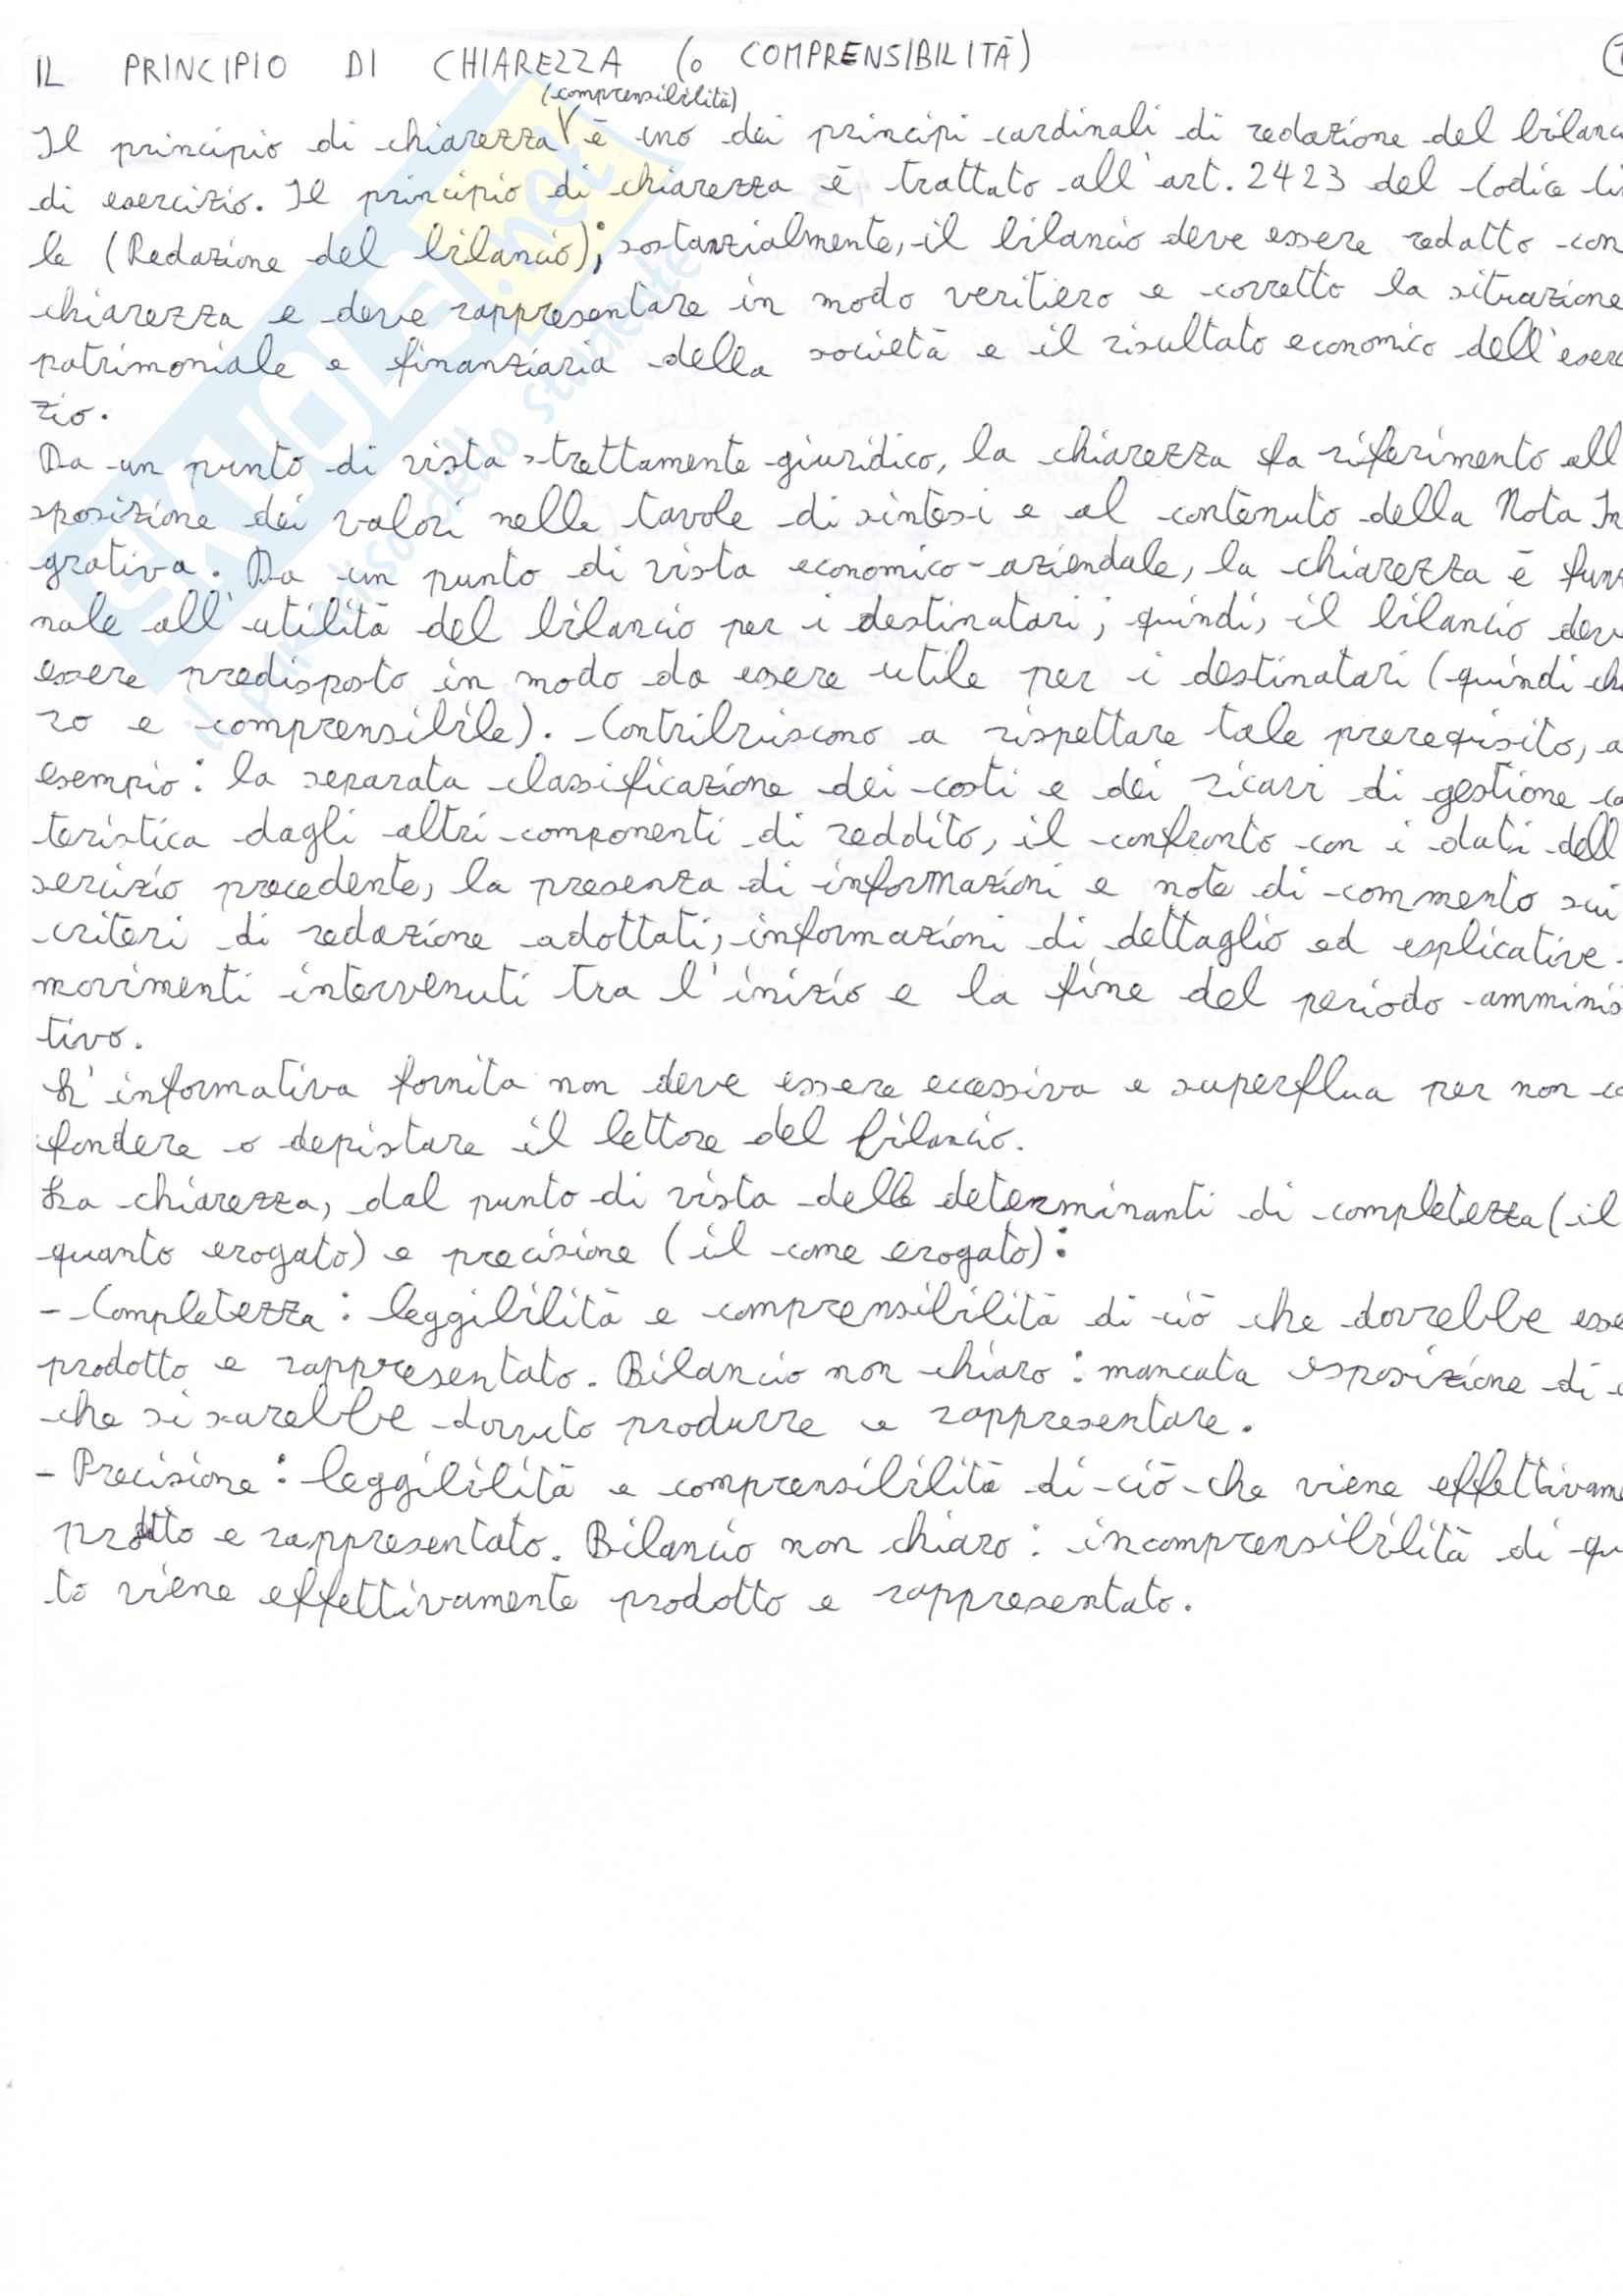 IL PRINCIPIO DI CHIAREZZA (o COMPRENSIBILITÀ)
(comprensibilità)
Il principio di chiarezza è uno dei principi cardinali di redazione del bilanc
di esercizio. Il principio di chiarezza è trattato all'art. 2423 del Codice Ci
le (Redazione del bilancio); sostanzialmente, il bilancio deve essere redatto con
chiarezza e deve rappresentare in modo veritiero e corretto la situazione
patrimoniale e finanziaria della società e il risultato economico dell'eserc
zio.
Da un punto di vista strettamente giuridico, la chiarezza fa riferimento all
sposizione dei valori nelle tavole di sintesi e al contenuto della Nota In
grativa. Da un punto di vista economico-aziendale, la chiarezza è funz
nale all'utilità del bilancio per i destinatari; quindi, il bilancio dev
essere predisposto in modo da essere utile per i destinatari (quindi chi
ro e comprensibile). Contribuiscono a rispettare tale prerequisito, a
esempio: la separata classificazione dei costi e dei ricavi di gestione ca
teristica dagli altri componenti di reddito, il confronto con i dati dell
sercizio precedente, la presenza di informazioni e note di commento sui
criteri di redazione adottati, informazioni di dettaglio ed esplicative
movimenti intervenuti tra l'inizio e la fine del periodo amminis
tivo.
L'informativa fornita non deve essere eccessiva e superflua per non co
fondere o depistare il lettore del bilancio.
La chiarezza, dal punto di vista delle determinanti di completezza (il
quanto erogato) e precisione (il come erogato):
- Completezza: leggibilità e comprensibilità di ciò che dovrebbe esse
prodotto e rappresentato. Bilancio non chiaro: mancata esposizione di c
che si sarebbe dovuto produrre e rappresentare.
- Precisione: leggibilità e comprensibilità di ciò che viene effettivame
prodotto e rappresentato. Bilancio non chiaro: incomprensibilità di qu
to viene effettivamente prodotto e rappresentato.
SKUOLA.net
il paradiso dello studente